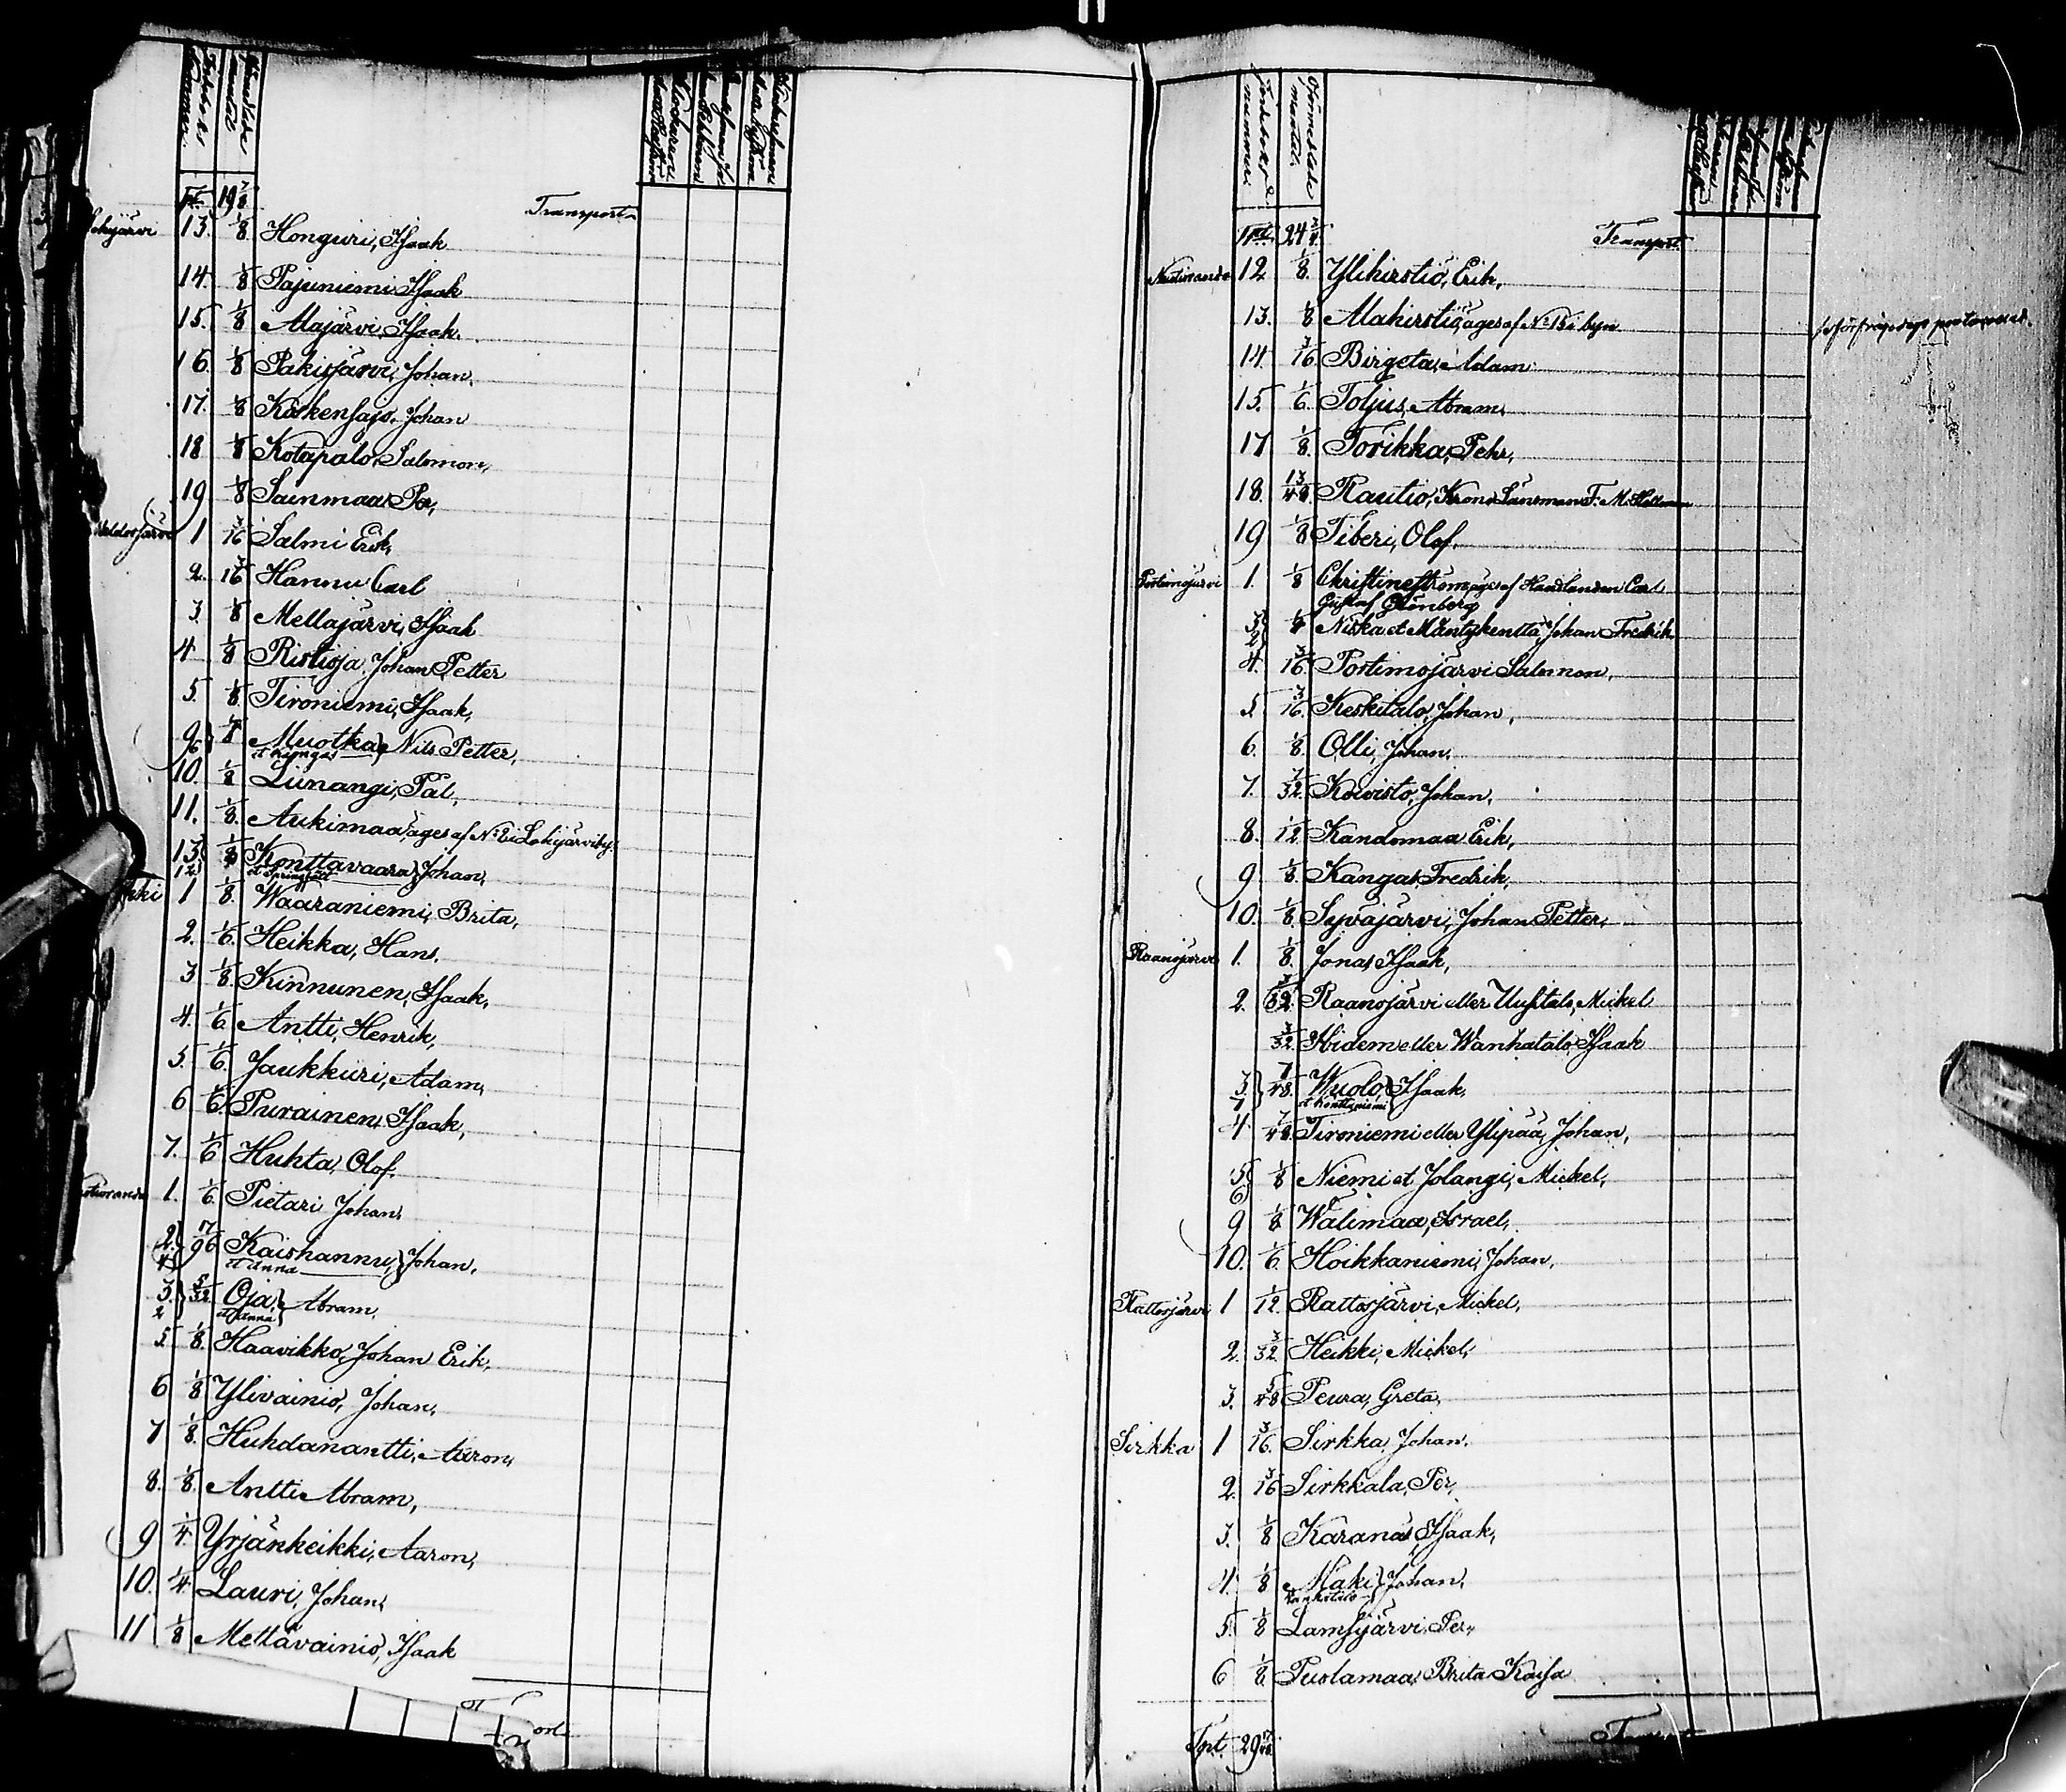 Jordeboks nummer.
Oförmedlade mantal
Trt. 19 7/8 Transport
Lohijärvi 13. 1/8 Honguri, Isaak
14. 1/8 Pajuniemi, Isaak
15. 1/8 Alajärvi, Isaak.
16. 1/8 Pakisjärvi, Johan.
17. 1/8 Koskenlajo, Johan
18 1/8 Kotapalo, Salomon,
19 1/8 Sainmaa, Per,
1 3/16 Salmi Erik,
2. 3/16 Hannu Carl
3. 1/8 Mellajärvi, Isaak
4 1/8 Ristioja, Johan Petter
5. 1/8 Tironiemi, Isaak,
9 6 Muotka et Kiongas } Nils Petter,
10. 1/8 Liinangi, Pål,
11. 1/8. Aukimaa, äges af No 2 i Lohijärvi by.
13. 12 1/8 Konttavaara } Johan,
1 1/8. Waaraniemi, Brita,
2. 1/6. Heikka, Hans.
3 1/8. Kinnunen, Isaak,
4. 1/6 Antti, Henrik,
5. 1/6. Jaukkuri, Adam,
6 1/6. Purainen, Isaak,
7. 1/6 Huhta, Olof.
1. 1/6. Pietari Johan,
2. 4 17/96 Kaishannu, et Anna } Johan,
3. 2 5/32 Oja, et Anna } Abram,
5. 1/8. Haavikko, Johan Erik,
6 1/8 Ylivainio, Johan,
7 1/8. Huhdanantti, Aaron,
8. 1/8. Antti Abram,
9 1/4. Yrjänheikki, Aaron,
10. 1/4. Lauri, Johan,
11 1/8 Mettävainio, Isaak
Jordeboks nummer.
Oförmedlade mantal.
Trt. 24 3/4. Transport
12 1/8. Ylihirstiö, Erik,
13. 1/8 Alahirstiö, äges af No 15 i byn
14. 3/16. Birgeta, Adam
15. 1/6. Toljus, Abram,
17 1/8. Torikka, Pehr,
18. 13/48. Rautio, Krono Länsman F. M.
19 1/8 Tiberi, Olof.
Portimojärvi 1. 1/8 Christineström, äges af Handlanden Carl
Gustaf Grönberg
3 2 Niska et Mäntykenttä, Johan Fredrik
4. 3/16. Portimojärvi Salomon,
5. 3/16. Keskitalo, Johan,
6. 1/8. Olli, Johan.
7. 7/32. Koivisto, Johan,
8. 1/12 Kandomaa Erik,
9 1/8. Kangas Fredrik,
10. 1/8. Syväjärvi, Johan Petter,
Raanojärvi 1. 1/8. Jonas, Isaak,
2. 3/32. Raanojärvi eller Uusitalo, Mickel
3/32. Ibidem eller Wanhatalo, Isaak
3 7 7/48. Wuolo, et Konttiniemi } Isaak,
4 7/48. Tironiemi eller Ylipää, Johan,
5 6 1/8 Niemi et Jolangi, Mickel,
9 1/8. Walimaa, Israel,
10. 1/6. Hoikkaniemi, Johan,
Rattosjärvi 1 1/12. Rattosjärvi, Mickel,
2. 3/32. Heikki, Mickel,
3. 5/48 Peura, Greta,
Sirkka 1 3/16. Sirkka, Johan.
2. 3/16 Sirkkala, Per,
3. 1/8 Käränäs, Isaak,
4. 1/8 Mäki } Johan,
5. 1/8 Lamsijärvi, Per,
6 1/8. Puolamaa, Brita Kaisa
Tpt. 29